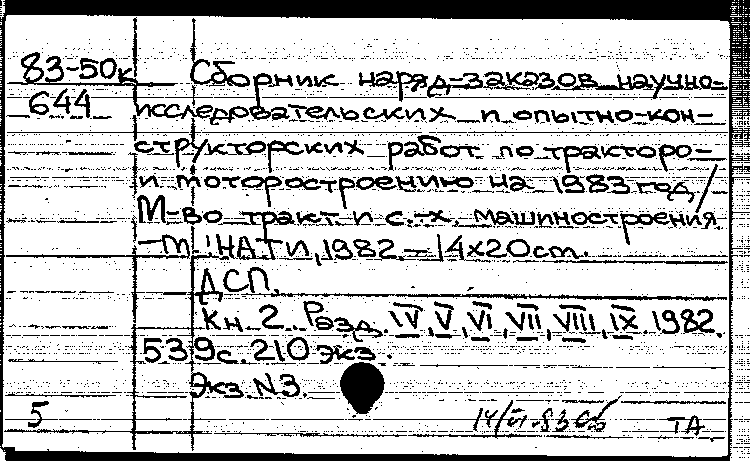 83-50к Сборник наряд-заказов научно-
644 исследовательских и опытно-кон-
структорских работ по тракторо-
и моторостроению на 1983 год /
М-во тракт. и с.-х. машиностроения.
-М.: НАТИ, 1982. - 14х20cm.
ДСП.
Кн. 2. Разд. IV, V, VI, VII, VIII, IX. 1982.
539с. 210 экз.
Экз. N3.
5 14/VI-83 ТА